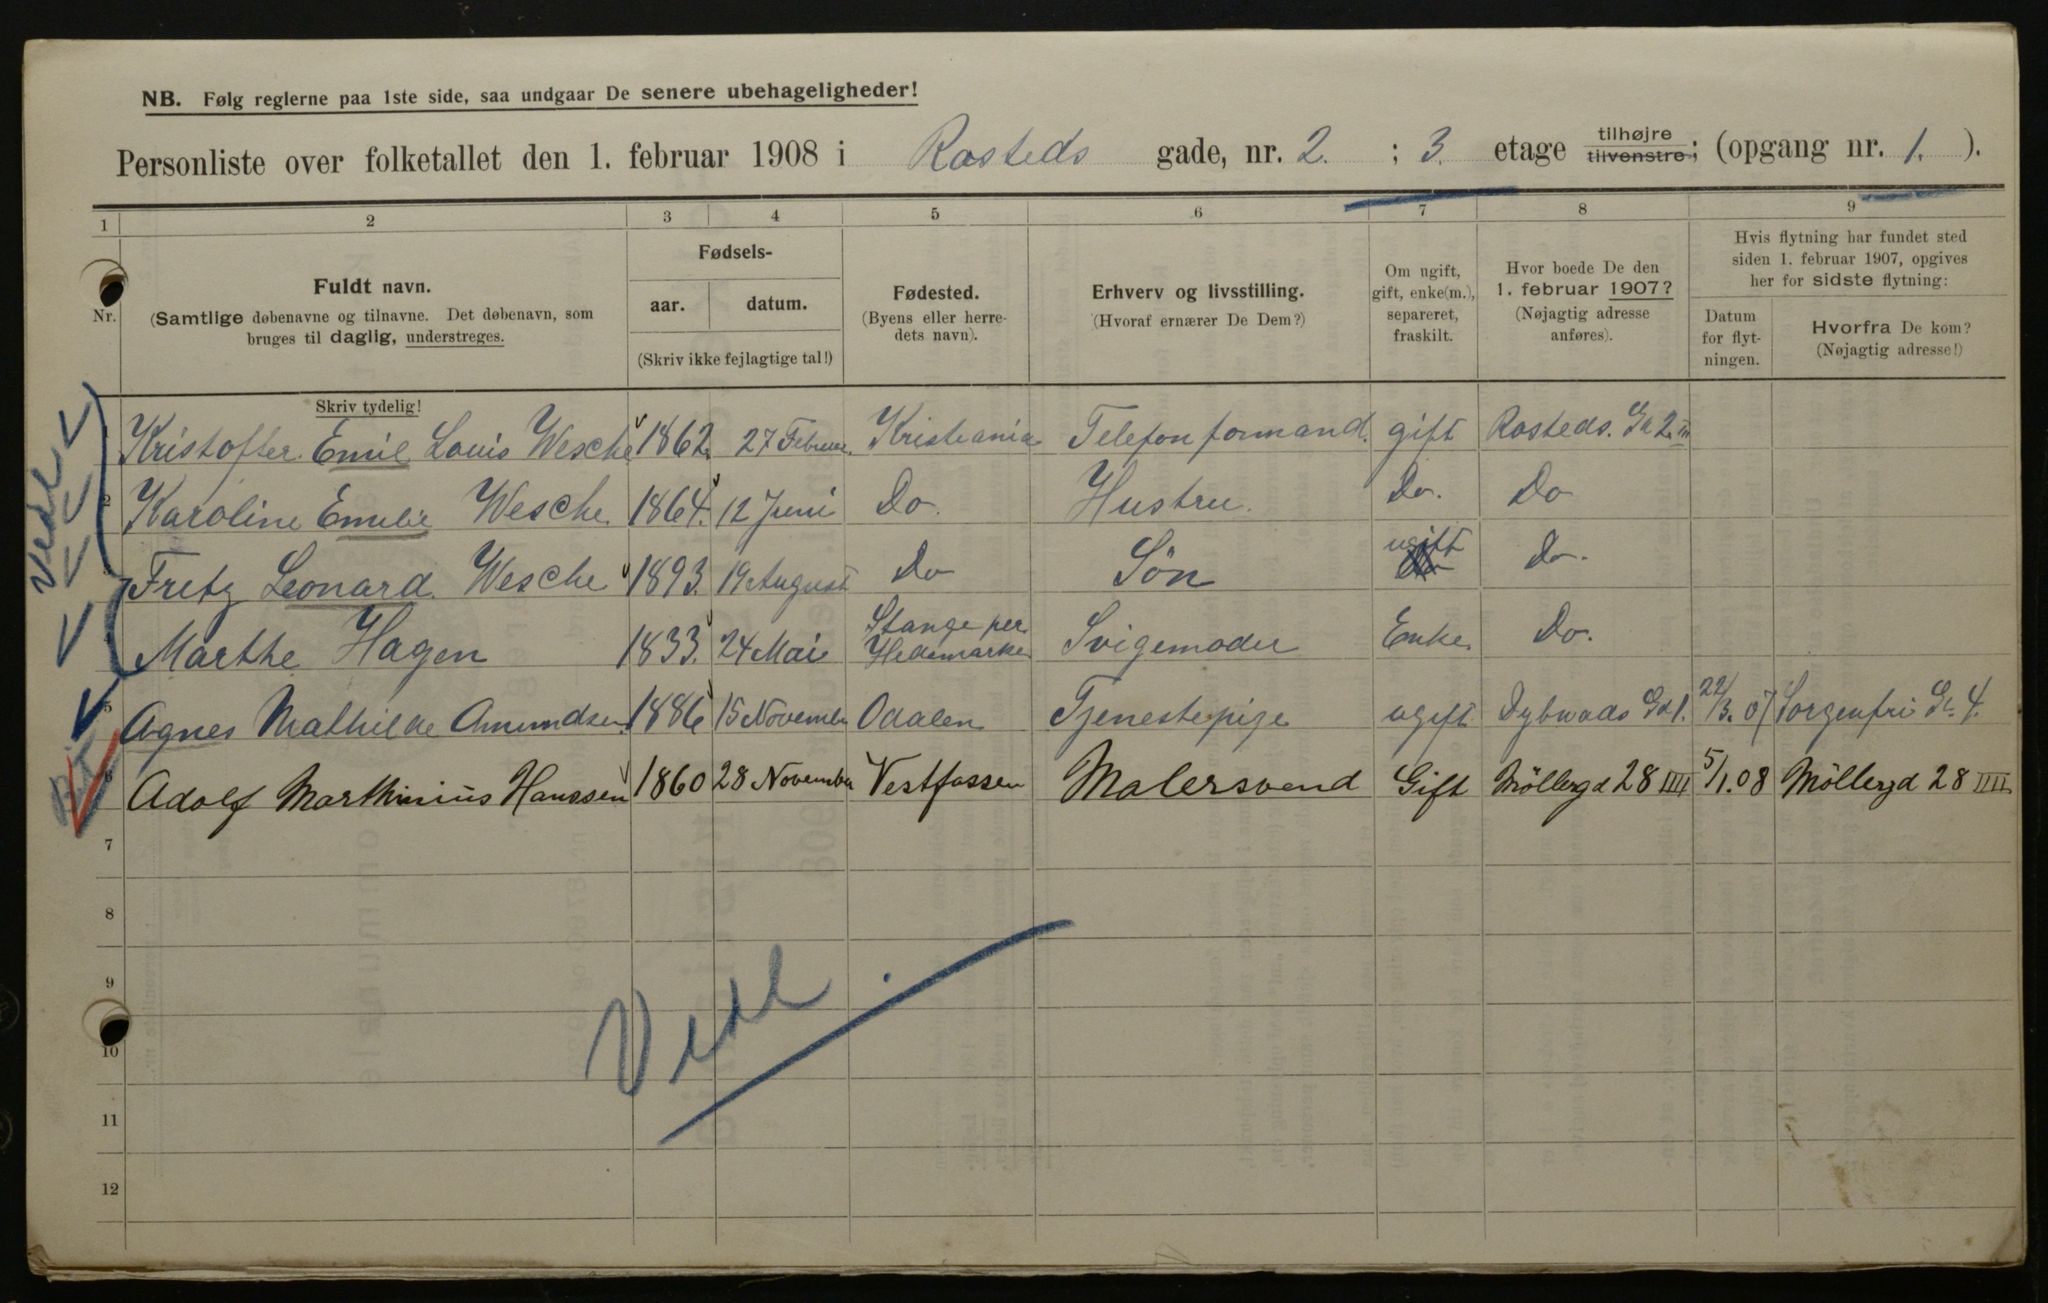 NB. Følg reglerne paa 1ste side, saa undgaar De senere ubehageligheder!
Personliste over folketallet den 1. februar 1908 i Rosteds gade, nr. 2. ; 3. etage tilhøjre tilvenstre; (opgang nr. 1. ).
1 2 3 4 5 6 7 8 9
Nr.
Fuldt navn.
(Samtlige døbenavne og tilnavne. Det døbenavn, som
bruges til daglig, understreges.
Skriv tydelig!
Fødsels-
aar. datum.
(Skriv ikke fejlagtige tal!)
Fødested.
(Byens eller herre-
dets navn).
Erhverv og livsstilling.
(Hvoraf ernærer De Dem?)
Om ugift,
gift, enke(m.),
separeret,
fraskilt.
Hvor boede De den
1. februar 1907?
(Nøjagtig adresse
anføres).
Hvis flytning har fundet sted
siden 1. februar 1907, opgives
her for sidste flytning:
Datum
for flyt-
ningen.
Hvorfra De kom?
(Nøjagtig adresse!)
Kristoffer Emil Louis Wesche 1862. 27 Februar. Kristiania Telefonformand. gift Rosteds. Gd 2 III
2 Karoline Emilie Wesche. 1864. 12 Juni Do. Hustru. Do. Do
Fritz Leonard. Wesche 1893. 19 August Do Søn ugift Do.
4 Marthe Hagen 1833. 24 Mai Stange per Hedemarken Svigemoder Enke. Do.
5 Agnes Mathilde Amundsen. 1886 15 November Odalen Tjenestepige ugift Dybwads Gd 1. 22/3. 07 Sorgenfri Gd. 4.
6 Adolf Marthinius Hanssen 1860 28 November Vestfossen Malersvend Gift Möllergd 28 IIII 5/1.08 Möllergd 28 IIII
7
8
9
10
11
12
Vedl
Vedl.